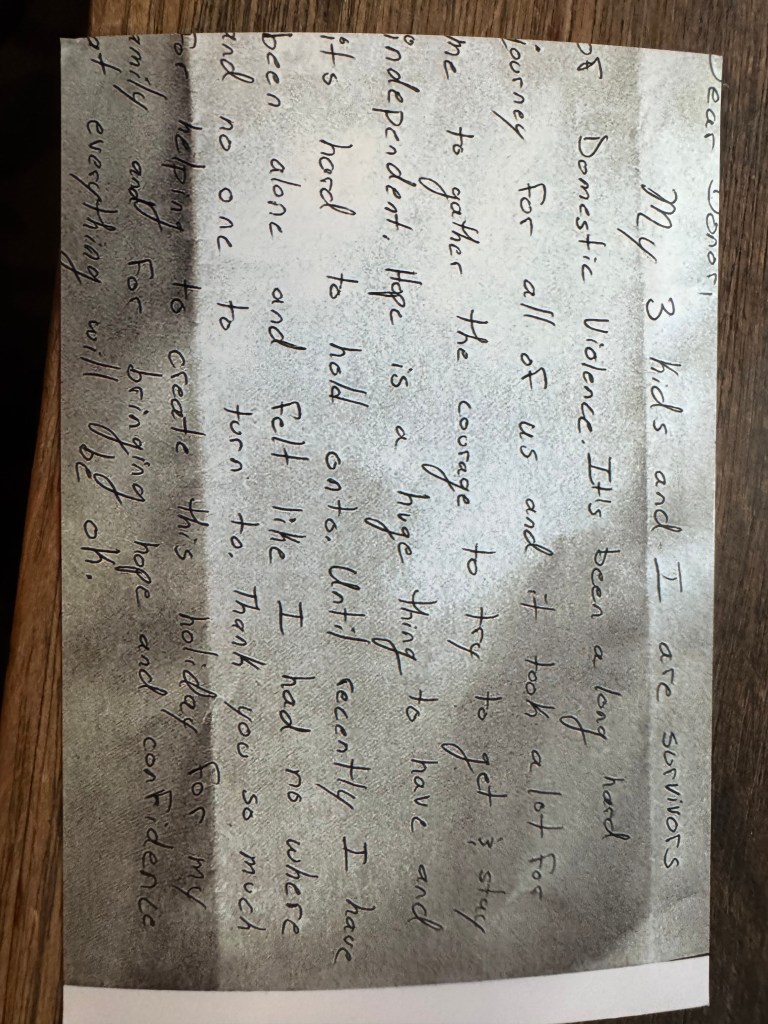 Dear Donor,
My 3 kids and I are survivors
of Domestic Violence. It's been a long hard
journey for all of us and it took a lot for
me to gather the courage to try to get & stay
independent. Hope is a huge thing to have and
it's hard to hold onto. Until recently I have
been alone and felt like I had no where
and no one to turn to. Thank you so much
for helping to create this holiday for my
amily and for bringing hope and confidence
at everything will be ok.